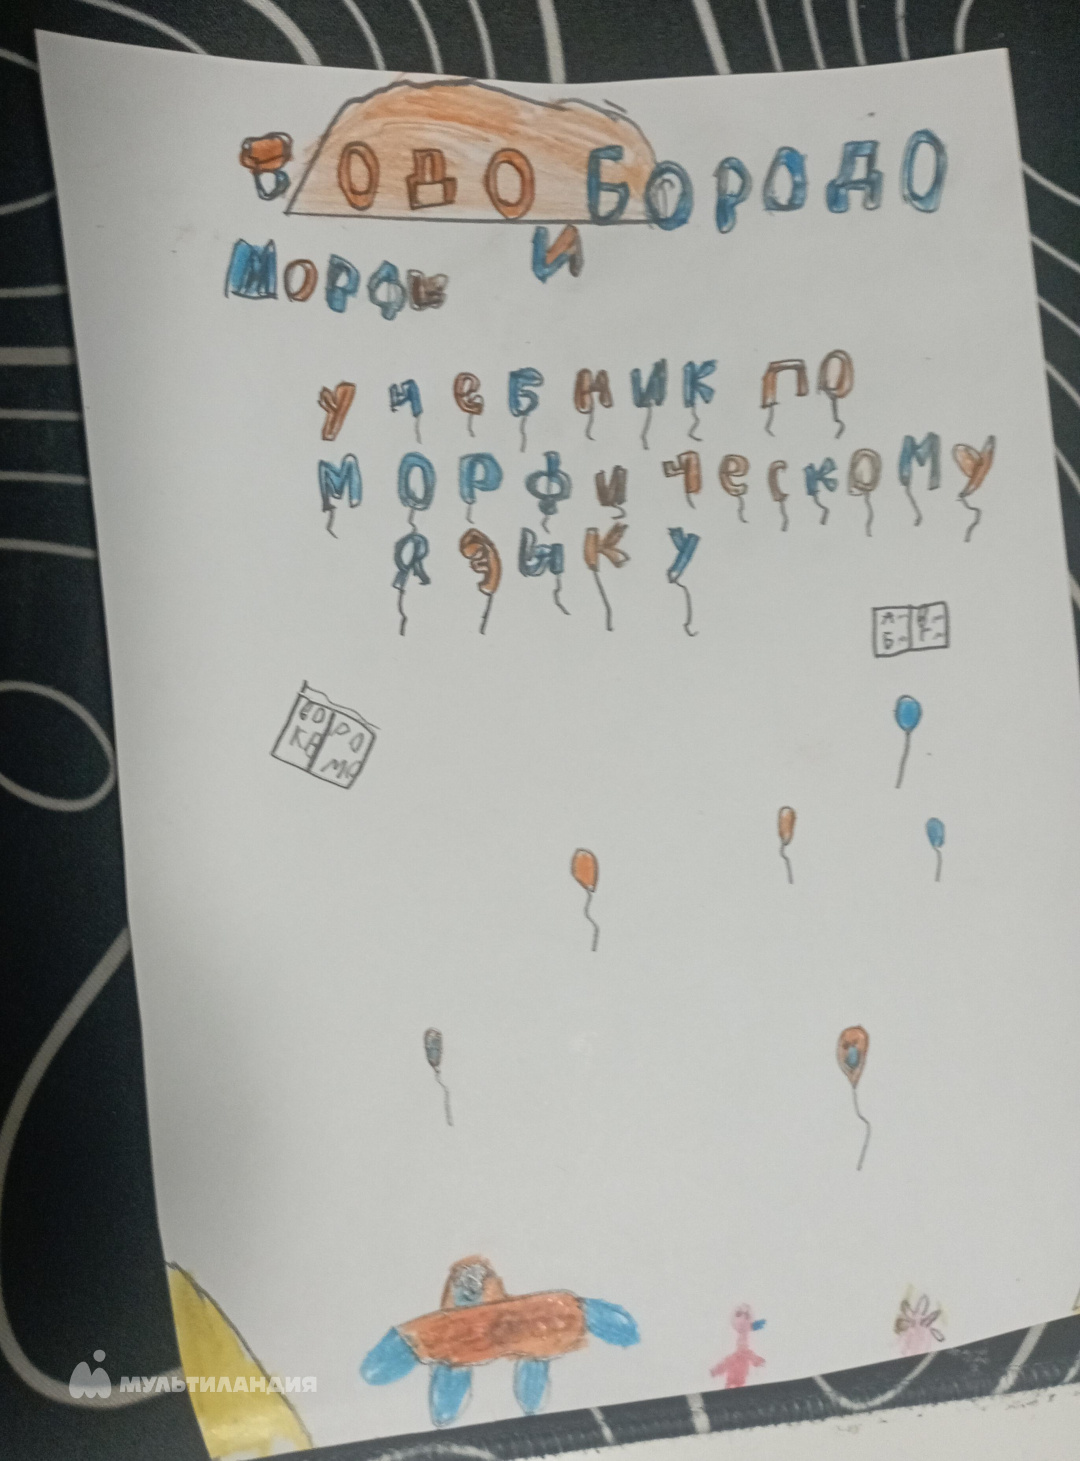 ВОДО БОРОДО
И
МОРФИ
УЧЕБНИК ПО
МОРФИЧЕСКОМУ
ЯЗЫКУ
А- В-
Б- Г-
МУЛЬТИЛАНДИЯ